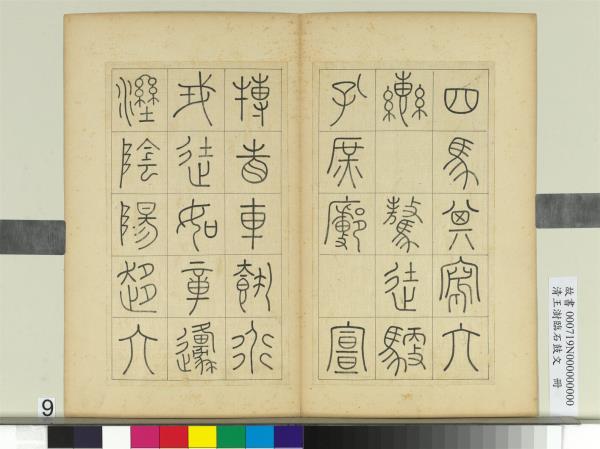 四馬其寫六
轡驁徒馭
孔庶廓宣
搏眚車行
戎徒如章邍
溼陰陽趍六
故書 000719N000000000
清王澍臨石鼓文 冊
9